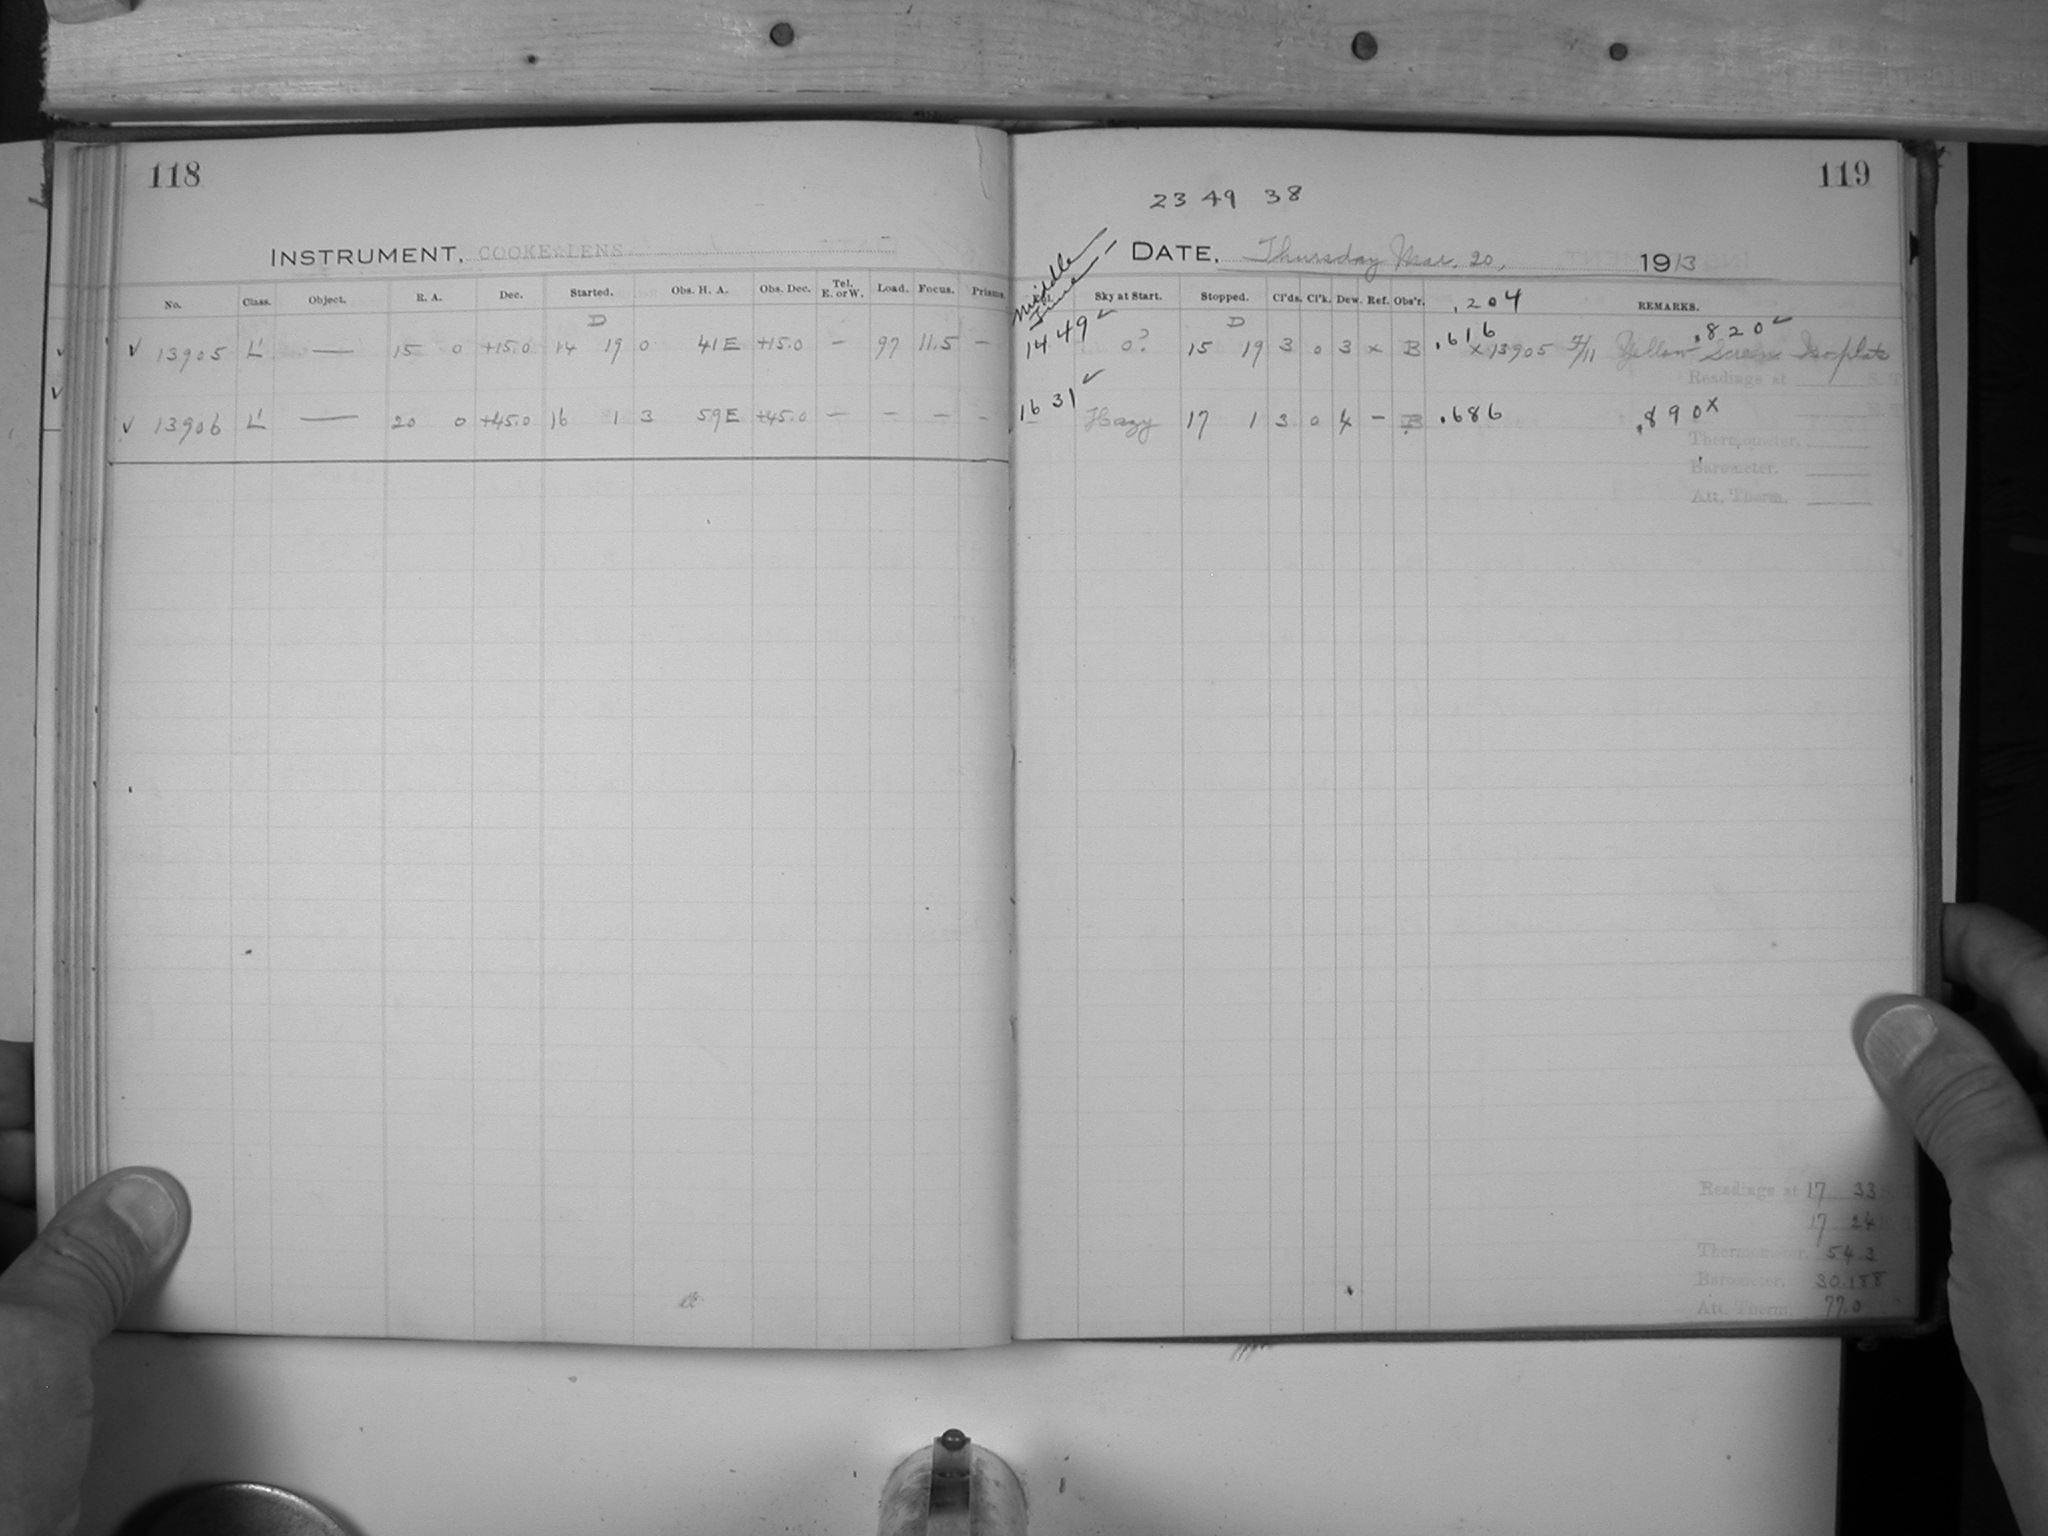 118
INSTRUMENT, COOKE LENS
No. Class. Object. R. A. Dec. Started. Obs. H. A. Obs. Dec. Tel. E. or W. Load. Focus. Prisms.
D
√ 13905 L' — 15 0 +15.0 14 19 0 41 E +15.0 — 97 11.5 —
√ 13906 L' — 20 0 +45.0 16 1 3 59 E +45.0 — — — —
119
23 49 38
DATE, Thursday Mar. 20, 1913
Middle Time
Sky at Start. Stopped. Cl'ds. Cl'k. Dew. Ref. Obs'r. .204 REMARKS.
D
14 49 ✓ 0? 15 19 3 0 3 x B .616 .820 ✓
x 13905 Yellow Screen Isoplate
Readings at S. T.
16 31 ✓ Hazy 17 1 3 0 4 — B .686 .890 x
Thermometer.
Barometer.
Att. Therm.
Readings at 17 33
17 24
Thermometer. 54.3
Barometer. 30.188
Att. Therm. 77.0